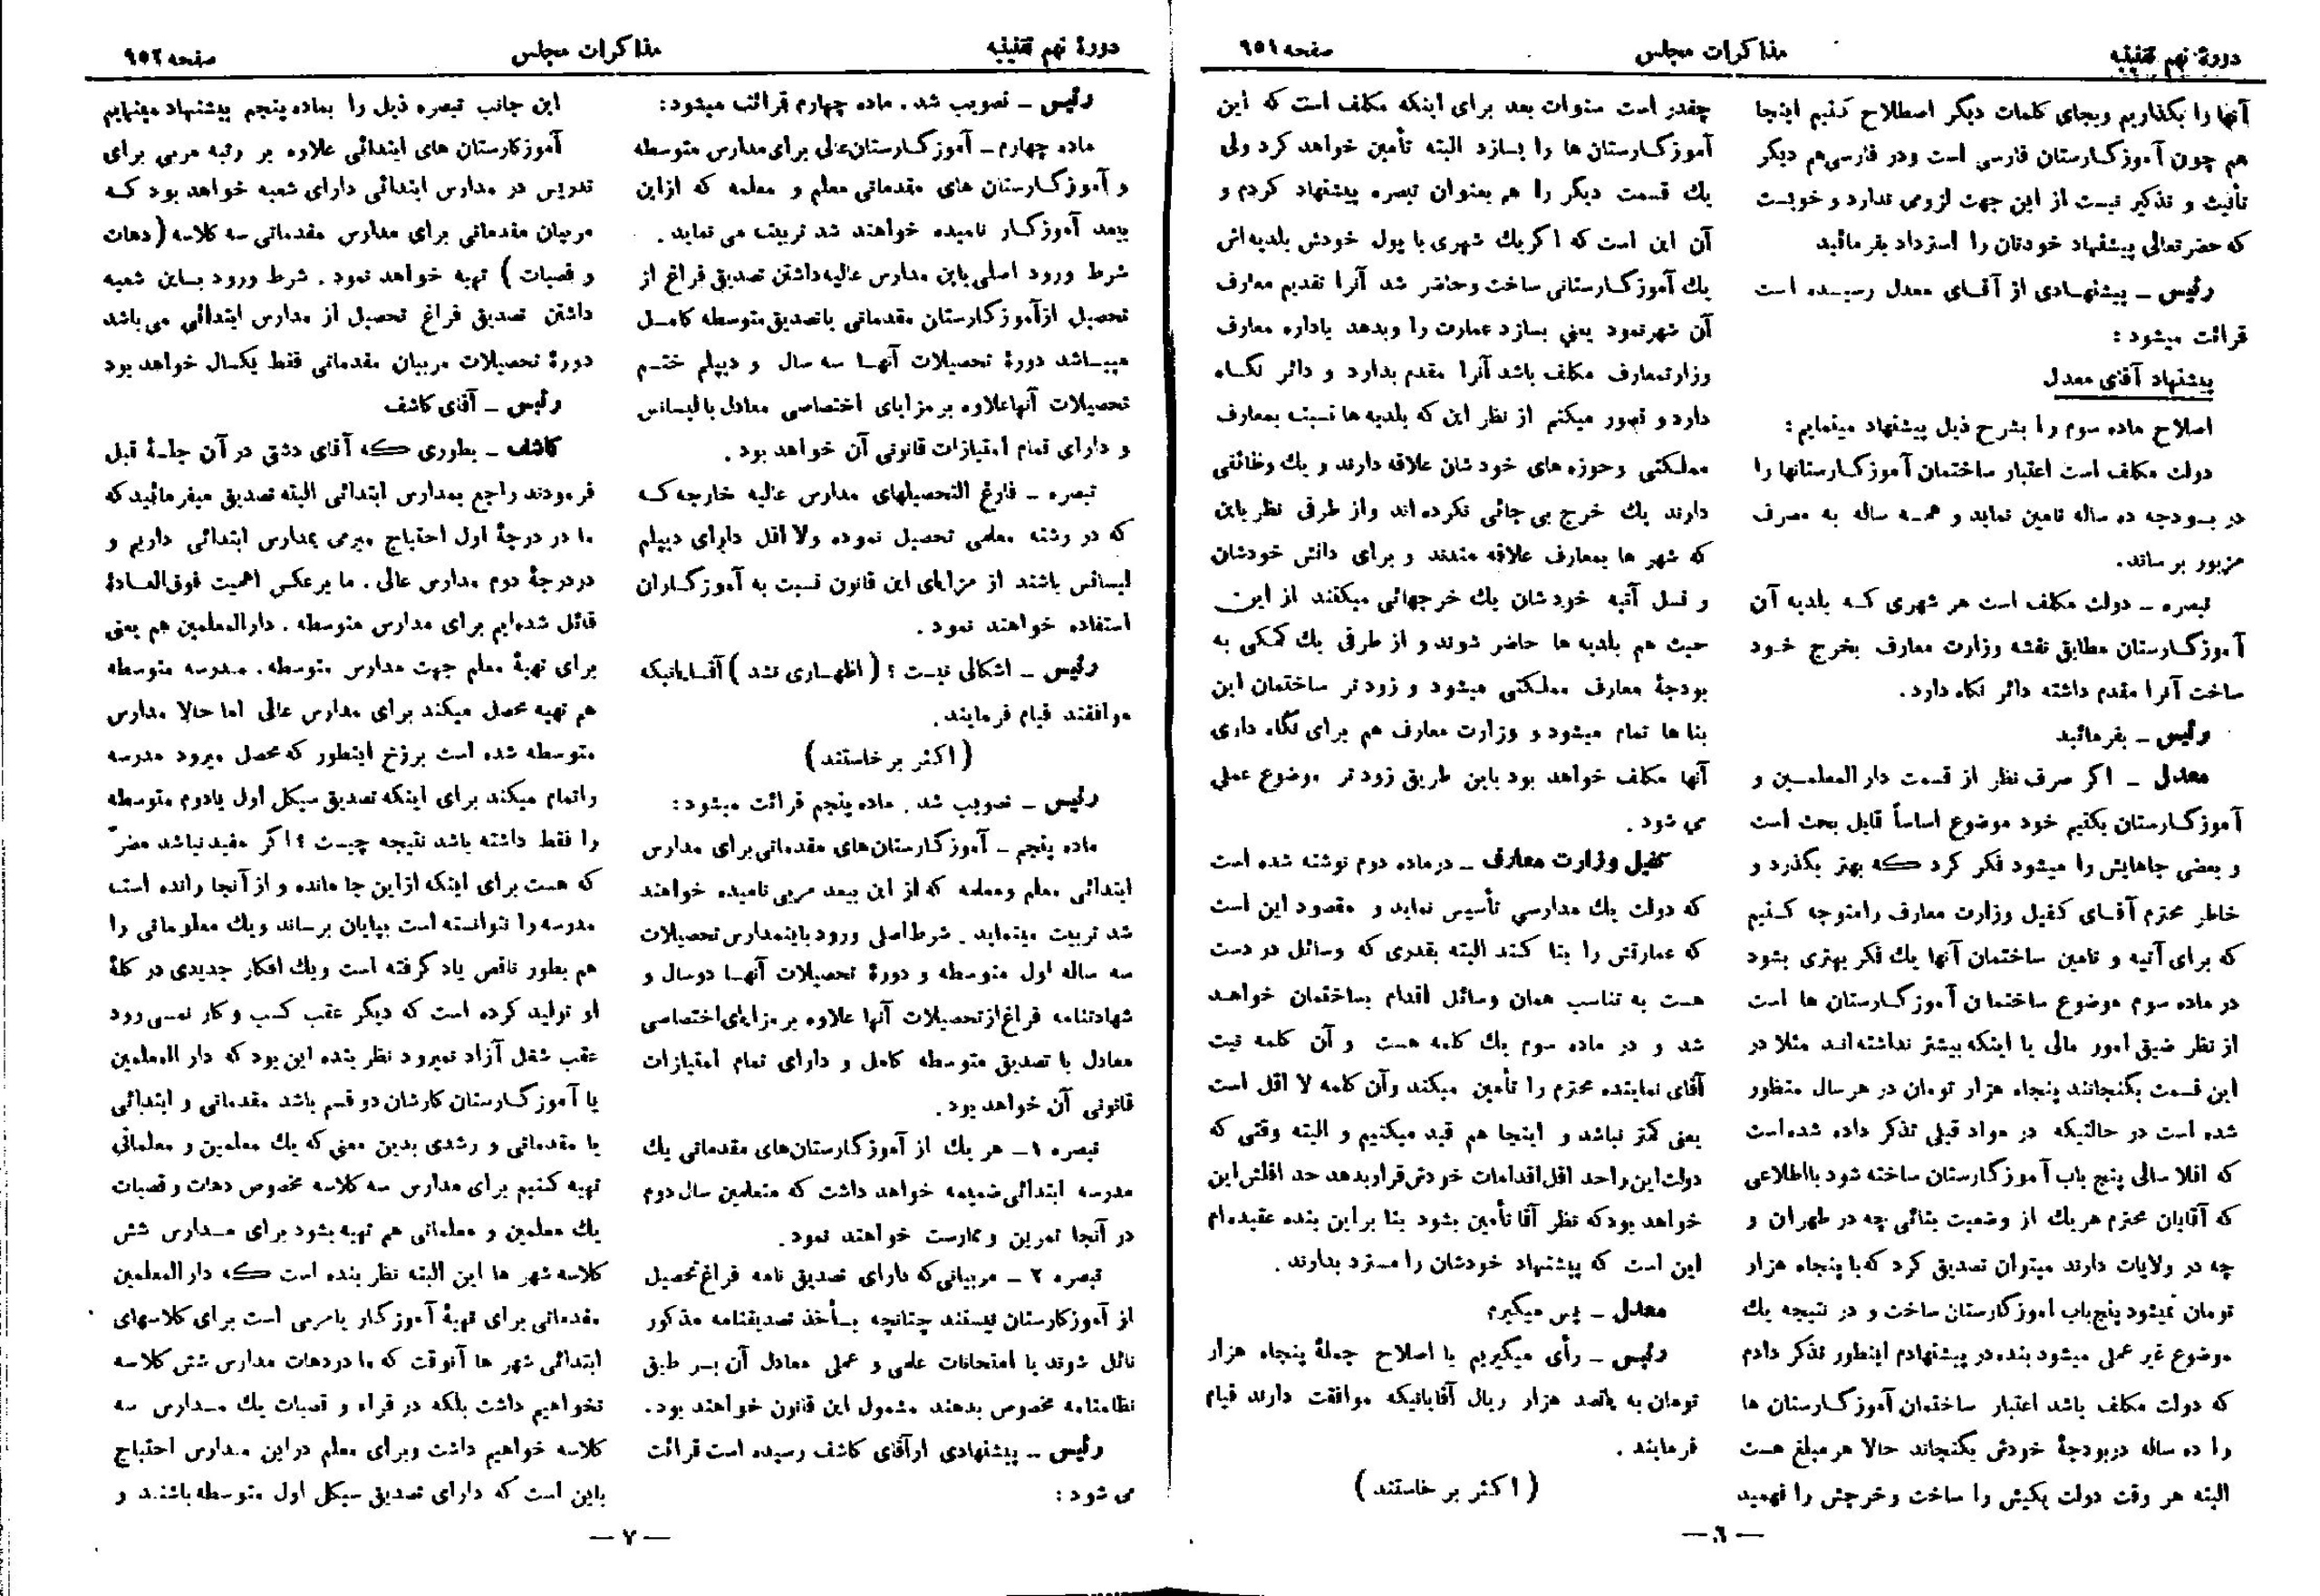 دورهٔ نهم تقنینیه
مذاکرات مجلس
صفحه ۹۵۱
آنها را بگذاریم وبجای کلمات دیگر اصطلاح کنیم اینجا
هم چون آموزگارستان فارسی است ودر فارسی‌هم دیگر
تأنیث و تذکیر نیست از این جهت لزومی ندارد و خوبست
که حضرتعالی پیشنهاد خودتان را استرداد بفرمائید
رئیس ــ پیشنهادی از آقای معدل رسیده است
قرائت میشود :
پیشنهاد آقای معدل
اصلاح ماده سوم را بشرح ذیل پیشنهاد مینمایم :
دولت مکلف است اعتبار ساختمان آموزگارستانها را
در بودجه ده ساله تامین نماید و همه ساله به مصرف
مزبور برساند.
تبصره ــ دولت مکلف است هر شهری که بلدیه آن
آموزگارستان مطابق نقشه وزارت معارف بخرج خود
ساخت آنرا مقدم داشته دائر نگاه دارد.
رئیس ــ بفرمائید
معدل ــ اگر صرف نظر از قسمت دار المعلمین و
آموزگارستان بکنیم خود موضوع اساساً قابل بحث است
و بعضی جاهایش را میشود فکر کرد که بهتر بگذرد و
خاطر محترم آقای کفیل وزارت معارف را متوجه کنیم
که برای آتیه و تامین ساختمان آنها یك فکر بهتری بشود
در ماده سوم موضوع ساختمان آموزگارستان ها است
از نظر ضیق امور مالی یا اینکه بیشتر نداشته‌اند مثلا در
این قسمت بگنجانند پنجاه هزار تومان در هر سال منظور
شده است در حالتیکه در مواد قبلی تذکر داده شده‌است
که اقلا سالی پنج باب آموزگارستان ساخته شود بااطلاعی
که آقایان محترم هریك از وضعیت بنائی چه در طهران و
چه در ولایات دارند میتوان تصدیق کرد که‌با پنجاه هزار
تومان نمیشود پنج‌باب اموزگارستان ساخت و در نتیجه یك
موضوع غیر عملی میشود بنده در پیشنهادم اینطور تذکر دادم
که دولت مکلف باشد اعتبار ساختمان آموزگارستان ها
را ده ساله دربودجهٔ خودش بگنجاند حالا هر مبلغ هست
البته هر وقت دولت یکیش را ساخت وخرجش را فهمید
چقدر است سنوات بعد برای اینکه مکلف است که این
آموزگارستان ها را بسازد البته تأمین خواهد کرد ولی
یك قسمت دیگر را هم بعنوان تبصره پیشنهاد کردم و
آن این است که اگر یك شهری با پول خودش بلدیه‌اش
یك آموزگارستانی ساخت وحاضر شد آنرا تقدیم معارف
آن شهر نمود یعنی بسازد عمارت را وبدهد باداره معارف
وزارتمعارف مکلف باشد آنرا مقدم بدارد و دائر نگاه
دارد و تصور میکنم از نظر این که بلدیه ها نسبت بمعارف
مملکتی وحوزه های خودشان علاقه دارند و یك وظائفی
دارند یك خرج بی جائی نکرده‌اند واز طرفی نظر باین
که شهر ها بمعارف علاقه مندند و برای دانش خودشان
و نسل آتیه خودشان یك خرجهائی میکنند از این
حیث هم بلدیه ها حاضر شوند و از طرفی یك کمکی به
بودجهٔ معارف مملکتی میشود و زودتر ساختمان این
بناها تمام میشود و وزارت معارف هم برای نگاه داری
آنها مکلف خواهد بود باین طریق زودتر موضوع عملی
می شود .
کفیل وزارت معارف ــ درماده دوم نوشته شده است
که دولت یك مدارسی تأسیس نماید و مقصود این است
که عمارتش را بنا کند البته بقدری که وسائل در دست
هست به تناسب همان وسائل اقدام بساختمان خواهد
شد و در ماده سوم یك کلمه هست و آن کلمه نیت
آقای نماینده محترم را تأمین میکند وآن کلمه لا اقل است
یعنی کمتر نباشد و اینجا هم قید میکنیم و البته وقتی که
دولت‌این‌راحد اقل‌اقدامات خودش‌قراربدهد حد اقلش‌این
خواهد بود که نظر آقا تأمین بشود بنا براین بنده عقیده‌ام
این است که پیشنهاد خودشان را مسترد بدارند .
معدل ــ پس میگیرم
رئیس ــ رأی میگیریم با اصلاح جملهٔ پنجاه هزار
تومان به پانصد هزار ریال آقایانیکه موافقت دارند قیام
فرمایند .
( اکثر برخاستند )
— ٦ —
دورهٔ نهم تقنینیه
مذاکرات مجلس
صفحه ۹۵۲
رئیس ــ تصویب شد . ماده چهارم قرائت میشود :
ماده چهارم ــ آموزگارستان‌عالی برای‌مدارس متوسطه
و آموزگارستان های مقدماتی معلم و معلمه که ازاین
ببعد آموزگار نامیده خواهند شد تربیت می نماید .
شرط ورود اصلی باین مدارس عالیه داشتن تصدیق فراغ از
تحصیل ازآموزگارستان مقدماتی یا تصدیق متوسطه کامل
میباشد دورهٔ تحصیلات آنها سه سال و دیپلم ختم
تحصیلات آنها علاوه بر مزایای اختصاصی معادل با لیسانس
و دارای تمام امتیازات قانونی آن خواهد بود .
تبصره ــ فارغ التحصیلهای مدارس عالیه خارجه که
که در رشته معلمی تحصیل نموده ولا اقل دارای دیپلم
لیسانس باشند از مزایای این قانون نسبت به آموزگاران
استفاده خواهند نمود .
رئیس ــ اشکالی نیست ؟ ( اظهاری نشد ) آقایانیکه
موافقند قیام فرمایند .
( اکثر بر خاستند )
رئیس ــ تصویب شد . ماده پنجم قرائت میشود :
ماده پنجم ــ آموزگارستان‌های مقدماتی‌برای مدارس
ابتدائی معلم ومعلمه که از این ببعد مربی نامیده خواهند
شد تربیت مینماید . شرط اصلی ورود باینمدارس تحصیلات
سه ساله اول متوسطه و دورهٔ تحصیلات آنها دوسال و
شهادتنامه فراغ‌ازتحصیلات آنها علاوه برمزایای‌اختصاصی
معادل با تصدیق متوسطه کامل و دارای تمام امتیازات
قانونی آن خواهد بود .
تبصره ۱ ــ هر یك از آموزگارستان‌های مقدماتی یك
مدرسه ابتدائی ضمیمه خواهد داشت که متعلمین سال دوم
در آنجا تمرین وممارست خواهند نمود .
تبصره ۲ ــ مربیانی‌که دارای تصدیق نامه فراغ‌تحصیل
از آموزکارستان نیستند چنانچه بأخذ تصدیقنامه مذکور
نائل شوند یا امتحانات علمی و عملی معادل آن بر طبق
نظامنامه مخصوص بدهند مشمول این قانون خواهند بود .
رئیس ــ پیشنهادی ازآقای کاشف رسیده است قرائت
می شود :
این جانب تبصره ذیل را بماده پنجم پیشنهاد مینمایم
آموزکارستان های ابتدائی علاوه بر رتبه مربی برای
تدریس در مدارس ابتدائی دارای شعبه خواهد بود که
مربیان مقدماتی برای مدارس مقدماتی سه کلاسه (دهات
و قصبات ) تهیه خواهد نمود . شرط ورود باین شعبه
داشتن تصدیق فراغ تحصیل از مدارس ابتدائی می باشد
دورهٔ تحصیلات مربیان مقدماتی فقط یکسال خواهد بود
رئیس ــ آقای کاشف
کاشف ــ بطوری که آقای دشتی در آن جلسهٔ قبل
فرمودند راجع بمدارس ابتدائی البته تصدیق میفرمائید که
ما در درجهٔ اول احتیاج مبرمی بمدارس ابتدائی داریم و
دردرجهٔ دوم مدارس عالی . ما برعکس اهمیت فوق‌العادهٔ
قائل شده‌ایم برای مدارس متوسطه . دارالمعلمین هم یعنی
برای تهیهٔ معلم جهت مدارس متوسطه . مدرسه متوسطه
هم تهیه محصل میکند برای مدارس عالی اما حالا مدارس
متوسطه شده است برزخ اینطور که محصل میرود مدرسه
راتمام میکند برای اینکه تصدیق سیکل اول یادوم متوسطه
را فقط داشته باشد نتیجه چیست ؟ اگر مفید نباشد مضرّ
که هست برای اینکه ازاین جا مانده و از آنجا رانده است
مدرسه را نتوانسته است بپایان برساند ویك معلوماتی را
هم بطور ناقص یاد گرفته است ویك افکار جدیدی در کلهٔ
او تولید کرده است که دیگر عقب کسب و کار نمی رود
عقب شغل آزاد نمیرود نظر بنده این بود که دار المعلمین
یا آموزگارستان کارشان دو قسم باشد مقدماتی و ابتدائی
یا مقدماتی و رشدی بدین معنی که یك معلمین و معلماتی
تهیه کنیم برای مدارس سه کلاسه مخصوص دهات و قصبات
یك معلمین و معلماتی هم تهیه بشود برای مدارس شش
کلاسه شهر ها این البته نظر بنده است که دار المعلمین
مقدماتی برای تهیهٔ آموزگار یا مربی است برای کلاسهای
ابتدائی شهر ها آنوقت که ما دردهات مدارس شش کلاسه
نخواهیم داشت بلکه در قراء و قصبات یك مدارس سه
کلاسه خواهیم داشت وبرای معلم دراین مدارس احتیاج
باین است که دارای تصدیق سیکل اول متوسطه باشند و
— ۷ —